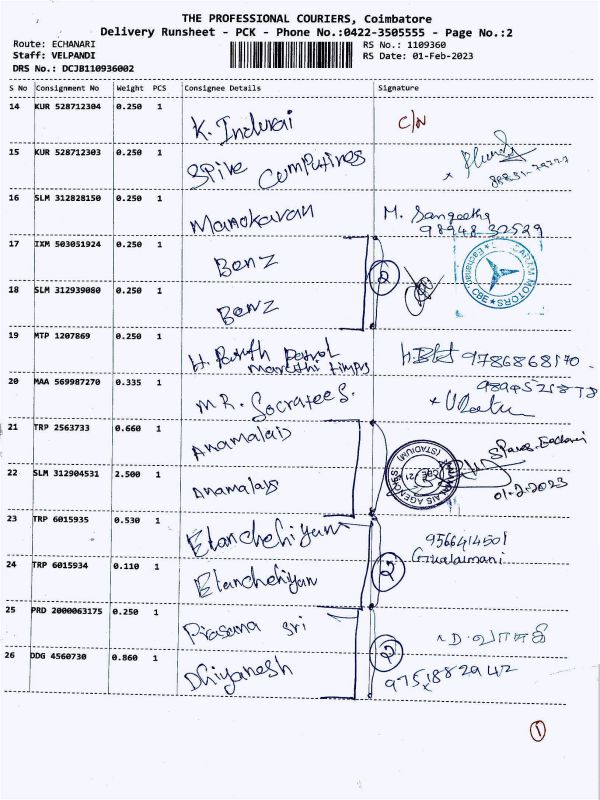 THE PROFESSIONAL COURIERS, Coimbatore
Delivery Runsheet - PCK - Phone No.:0422-3505555 - Page No.:2
Route: ECHANARI
RS No.: 1109360
Staff: VELPANDI
RS Date: 01-Feb-2023
DRS No.: DCJB110936002
S No Consignment No Weight PCS Consignee Details Signature
14 KUR 528712304 0.250 1 K. Indurai C/N
15 KUR 528712303 0.250 1 Spire Computires
16 SLM 312828150 0.250 1 Manokaran M. Sangeetha
98948 32529
17 IXM 503051924 0.250 1 Benz 2
18 SLM 312939080 0.250 1 Benz
MOTORS CBE
19 MTP 1207869 0.250 1 H. Petrol 9786868170
Maruthi
20 MAA 569987270 0.335 1 M.R. Socratees.
21 TRP 2563733 0.660 1 Anamalais
22 SLM 312904531 2.500 1 Anamalays
ANAMALAIS AGENCIES (STADIUM) CBE
01.2.2023
23 TRP 6015935 0.530 1 Elanchehiyan 9566414501
24 TRP 6015934 0.110 1 Elanchehiyan 2
25 PRD 2000063175 0.250 1 Prasana Sri
26 DDG 4560730 0.860 1 Dhiyanesh 2
9751882942
1